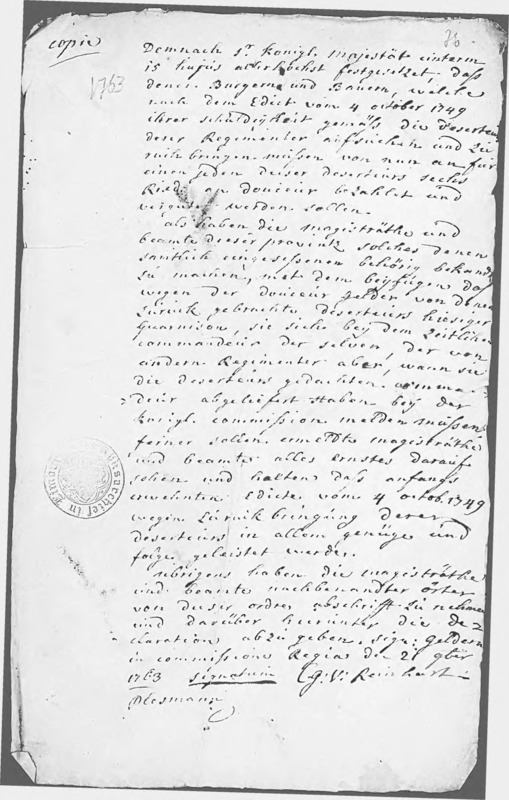 copie
1763
Demnach Sr. Königl. Majestät unterm
15 hujus allerhöchst festgesetzet, daß
denen Burgern und Bauern, welche
nach dem Edict vom 4 october 1749
ihrer schuldigkeit gemäß die Deserteurs
derer Regimenter aufsuchen und zu
rück bringen müssen von nun an für
einen jeden dieser deserteurs sechs
an douceur bezahlet und
werden sollen.
als haben die magisträthe und
beamte dieser provintz solches denen
sämtlich eingesessenen behörig bekandt
zu machen, mit dem beyfügen daß
wegen der douceur gelder von denen
zürück gebrachte deserteurs hiesiger
Guarnison, sie sich bey dem zeitlichen
commandeur der selben, der von
andern Regimenter aber, wann sie
die deserteurs gedachten comman-
deur abgeliefert haben bey der
Königl. commission melden müssen
ferner sollen ermeldte magisträthe
und beamte alles ernstes darauf
sehen und halten daß anfangs
erwehnten Edicte vom 4 octob. 1749
wegen zürück bringung derer
deserteurs in allem genüge und
folge geleistet werde.
übrigens haben die magisträthe
und beamte nachbenandter örter
von dieser ordre abschrifft zu nehmen
und darüber hierunter die de-
claration abzugeben. sign: geldern
in commissione Regia de 21 9br
1763 signatum G: V: Reinhart
Plesmann